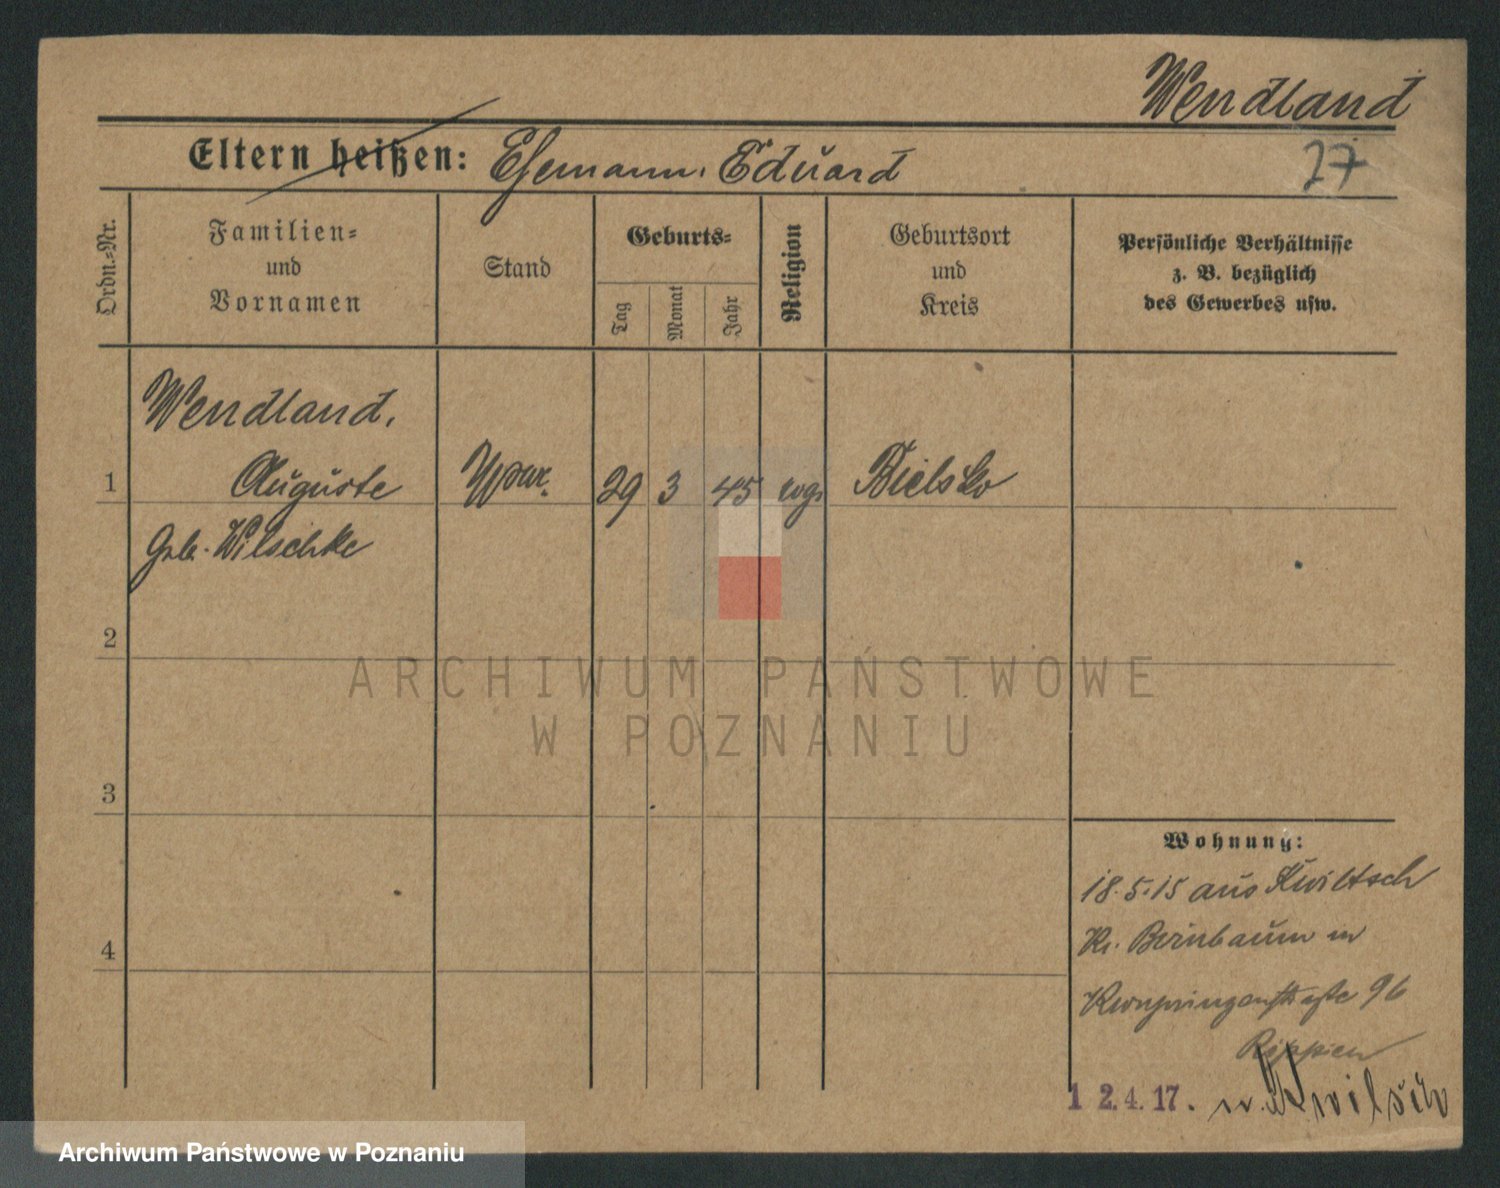 Wendland
Eltern heißen: Ehemann. Eduard
27
Ordn.-Nr.
Familien-
und
Vornamen
Stand
Geburts-
Tag
Monat
Jahr
Religion
Geburtsort
und
Kreis
Persönliche Verhältnisse
z. B. bezüglich
des Gewerbes usw.
Wendland,
1 Auguste 29 3 45 Bielsko
Geb. Wilschke
2
3
4
Wohnung:
18.5.15 aus Kwiltsch
Kr. Birnbaum in
Kronprinzenstraße 96
12.4.17. n. Kwilsch
ARCHIWUM PAŃSTWOWE
W POZNANIU
Archiwum Państwowe w Poznaniu